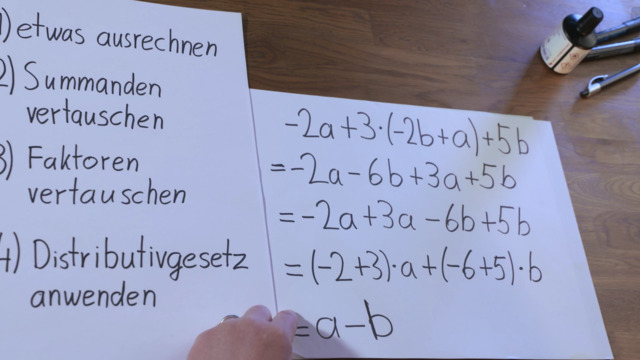 1) etwas ausrechnen
2) Summanden
vertauschen
3) Faktoren
vertauschen
4) Distributivgesetz
anwenden
-2a+3·(-2b+a)+5b
=-2a-6b+3a+5b
=-2a+3a-6b+5b
=(-2+3)·a+(-6+5)·b
=a-b